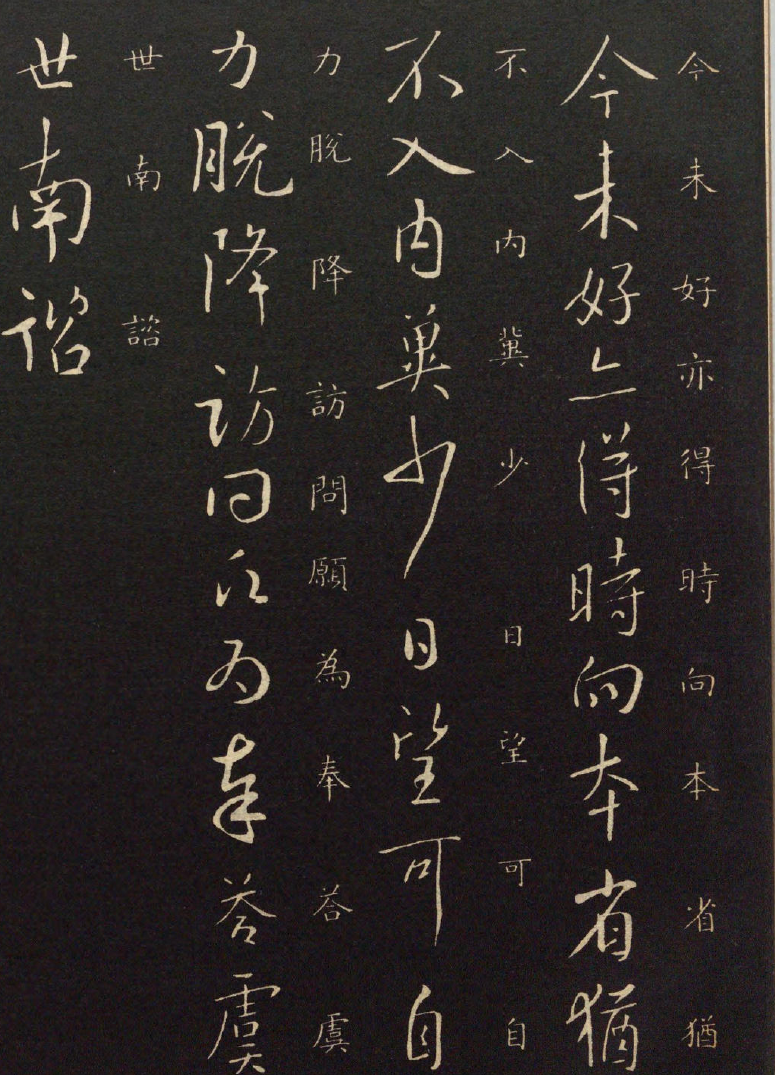 今未好亦得時向本省猶
今未好亦得時向本省猶
不入内冀少日望可自
不入内冀少日望可自
力脫降訪問願為奉荅虞
力脫降訪問願為奉荅虞
世南諮
世南諮